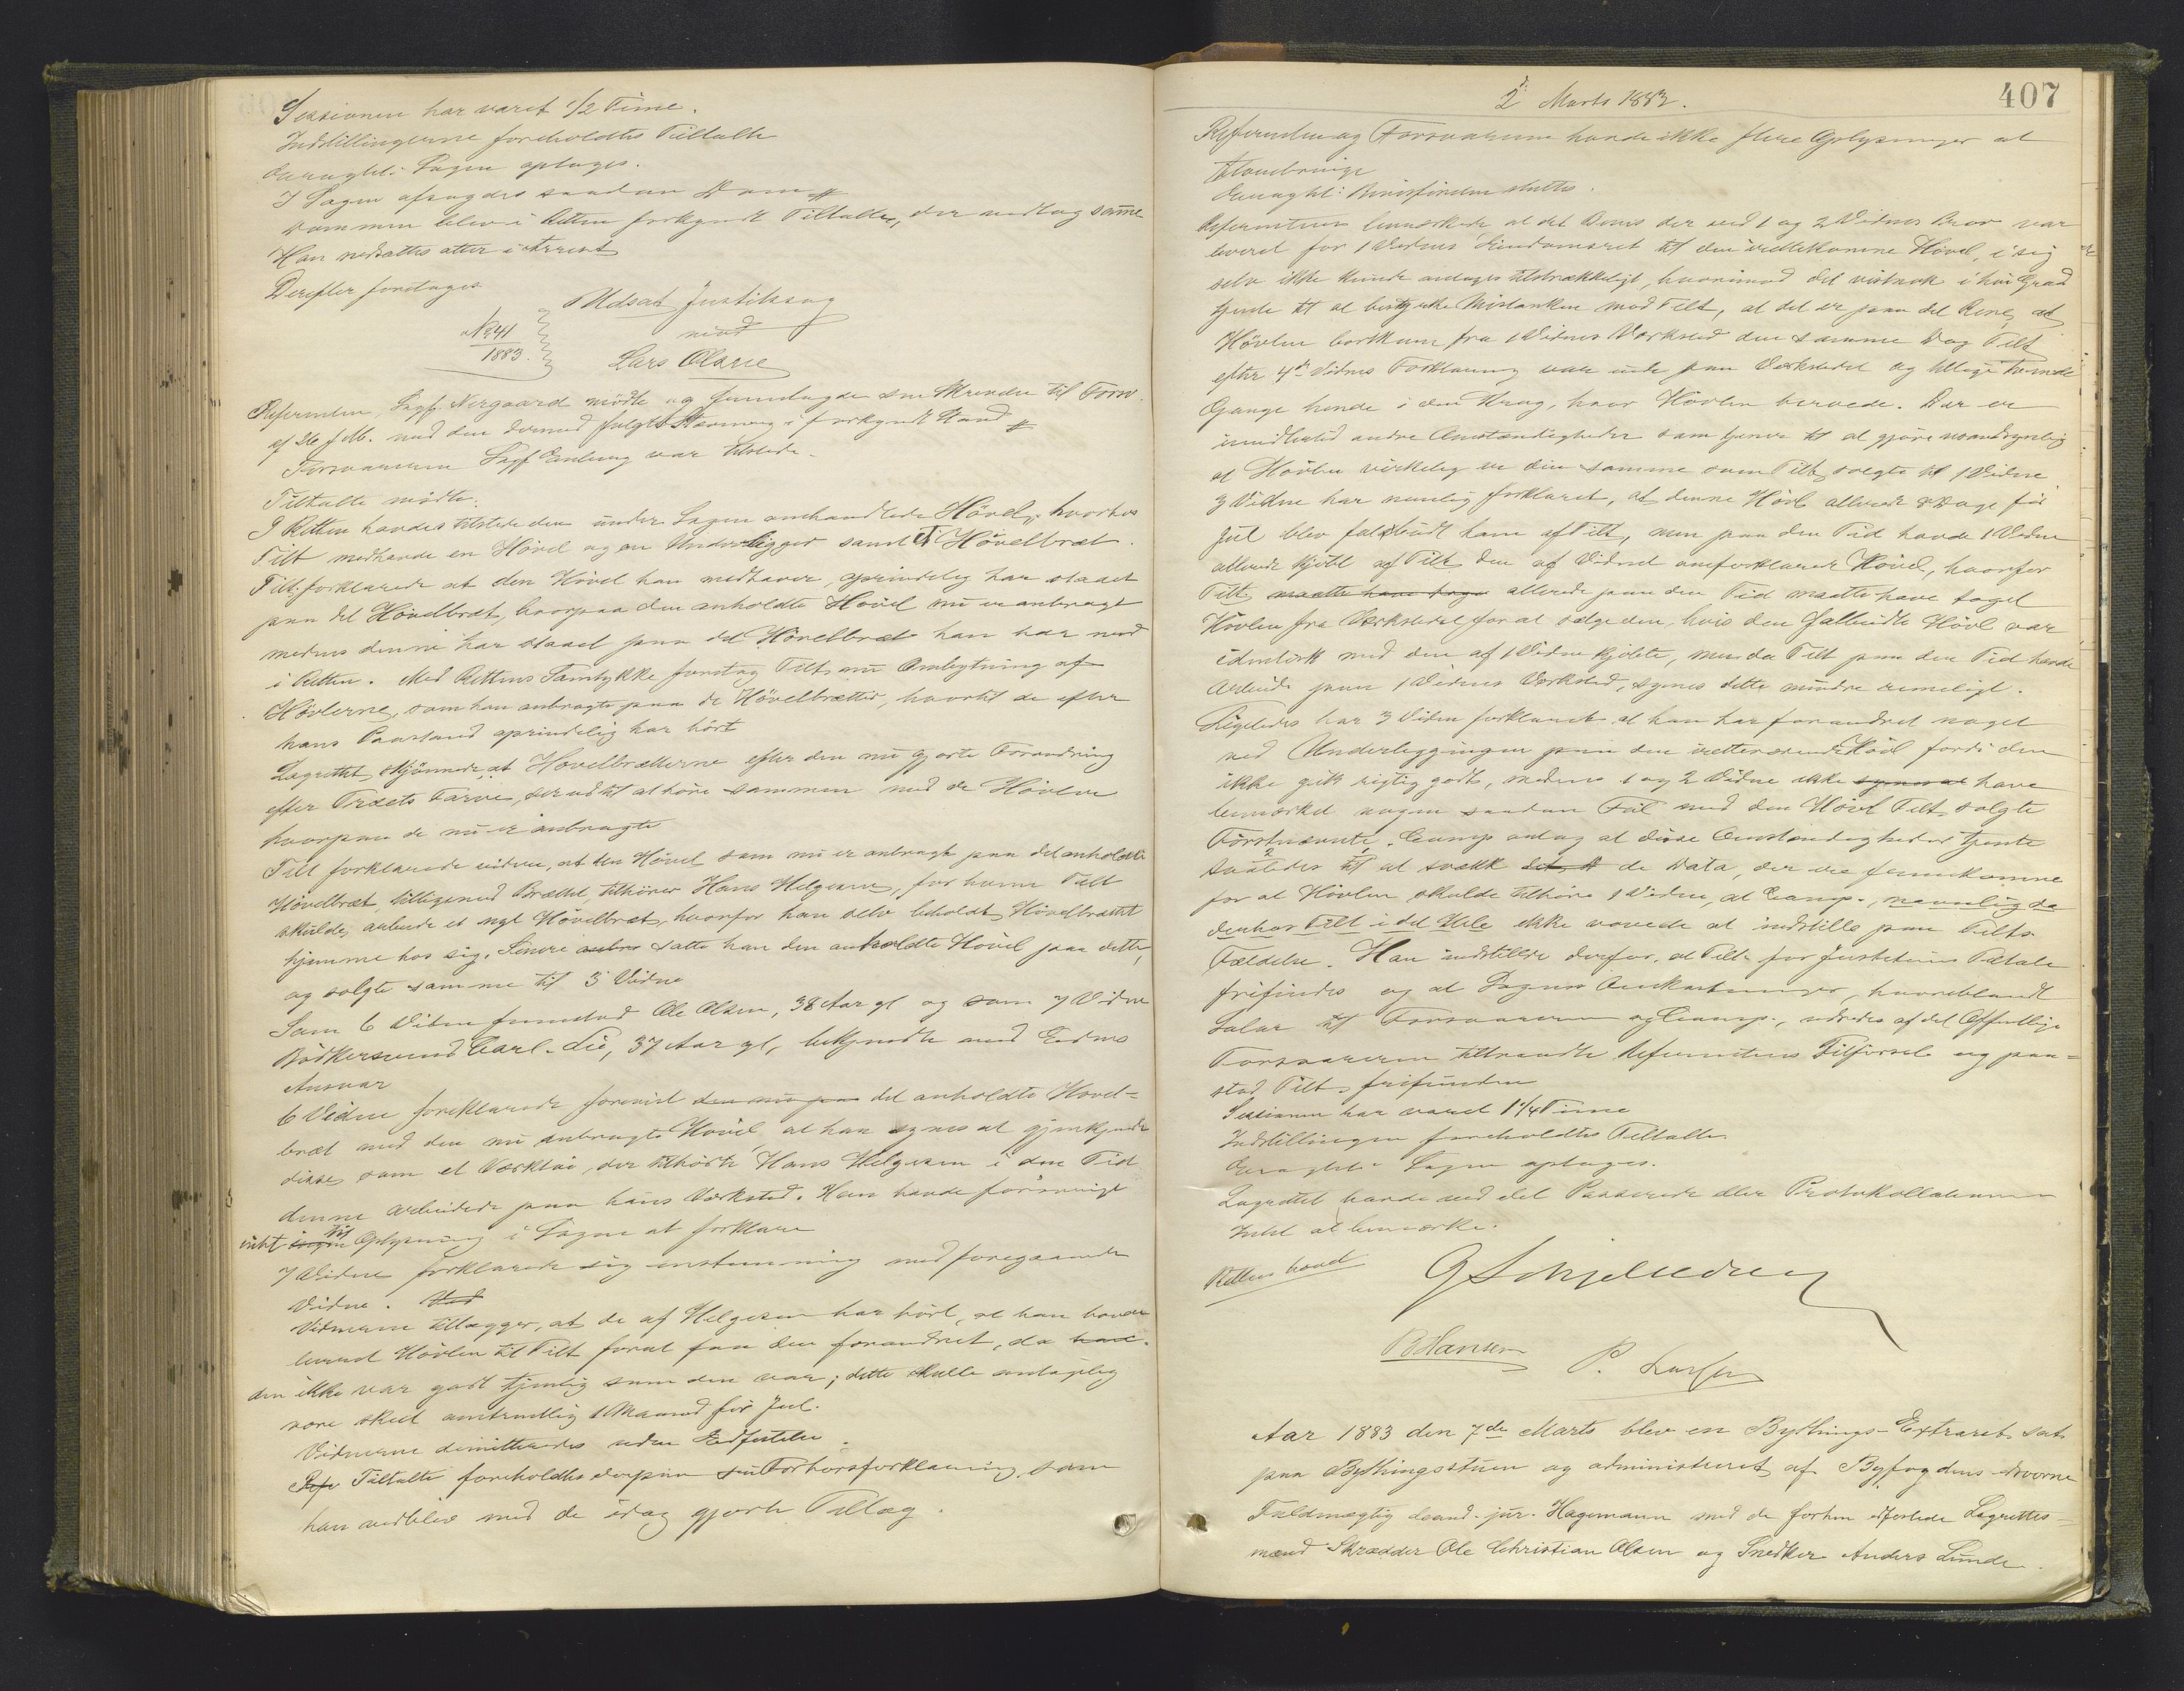 Sessionen har varet 1/2 Time.
Indstillingerne foreholdtes Tiltalte
Eragtet: Sagen optages.
I Sagen afsagdes saadan Dom
Dommen blev i Retten forkyndt Tiltalte, der modtog samme
Han nedsattes atter i Arrest
Derefter foretages
Udsat Justitssag
No 41
1883.
mod
Lars Olsen
Referenten, Sagf. Nergaard mødte og fremlagde sin Skrivelse til Forsv.
af 26 f. M. med den dermed fulgte Stevning i forkyndt Stand
Forsvareren Sagf. var tilstede.
Tiltalte mødte.
I Retten havdes tilstede den under Sagen omhandlede Hövel, hvorhos
Tilt. medhavde en Hövel og en Underligger samt et Hövelbræt.
Tilt. forklarede at den Hövel han medhaver, oprindelig har staaet
paa det Hövelbræt, hvorpaa den anholdte Hövel nu er anbragt
medens denne har staaet paa det Hövelbræt han har med
i Retten. Med Rettens Samtykke foretog Tilt. nu Ombytning af
Hövlerne, som han anbragte paa de Hövelbrætter, hvortil de efter
hans Paastand oprindelig har hört
Lagrettet skjönnede, at Hovelbrætterne efter den nu gjorte Forandring
efter Træets Farve, ser ud til at höre sammen med de Hövler
hvorpaa de nu er anbragte
Tilt. forklarede videre, at den Hövel som nu er anbragt paa det anholdte
Hövelbræt, tilligemed Brættet tilhörer Hans Helgesen, for hvem Tilt
skulde arbeide et nyt Hövelbræt, hvorfor han selv beholdt Hövelbrættet
hjemme hos sig. Senere satte han den anholdte Hövel paa dette,
og solgte samme til 3 Vidne
Som 6 Vidne fremstod Ole Olsen, 38 Aar gl. og som 7 Vidne
Bödkersvend Carl Lie, 37 Aar gl., bekjendte med Edens
Ansvar
6 Vidne forklarede forevist den nu paa det anholdte Hovel=
bræt med den nu anbragte Hövel, at han synes at gjenkjende
disse som et Værktöi, der tilhörte Hans Helgesen i den Tid
denne arbeidede paa hans Værksted. Han havde forövrigt
intet til Oplysning i Sagen at forklare
7 Vidne forklarede sig enstemmig med foregaaende
Vidne.
Vidnerne tillægger, at de af Helgesen har hört, at han havde
leveret Hövlen til Tilt. foraat faa den forandret, da
den ikke var godt tjenlig som den var; dette skulle antagelig
være skeet omtrentlig 1 Maaned för Jul.
Vidnerne dimitteredes uden Edfæstelse.
Tiltalte foreholdtes derpaa sin Forhörsforklaring som
han vedblev med de idag gjorte Tillæg.
2 Marts 1883.
407
Referenten og Forsvareren havde ikke flere Oplysninger at
tilveiebringe
Eragtet: Bevisförelsen sluttes.
Referenten bemærkede at det Bevis der ved 1 og 2 Vidnes Prov var
leveret for 1 Vidnes Eiendomsret til den irettekomne Hövel, i sig
selv ikke kunde ansees tilstrækkeligt, hvorimod det vistnok i höi Grad
tjente til at bestyrke Mistanken mod Tilt., at det er paa det Rene, at
Hövlen bortkom fra 1 Vidnes Værksted den samme Dag Tilt.
efter 4de Vidnes Forklaring var inde paa Værkstedet og tillige tvende
Gange henne i den Krog, hvor Hövlen beroede. Der er
imidlertid andre Omstændigheder som tjener til at gjöre usandsynlig
at Hövlen virkelig er den samme som Tilt. solgte til 1 Vidne.
3 Vidne har nemlig forklaret, at denne Hövl allerede 8 Dage för
Jul blev falbudt ham af Tilt, men paa den Tid havde 1 Vidne
allerede kjöbt af Tilt. den af Vidnet omforklarede Hövel, hvorfor
Tilt. maatte have tage allerede paa den Tid maatte have taget
Hövlen fra Værkstedet for at sælge den, hvis den falbudte Hövl var
identisk med den af 1 Vidne kjöbte, men da Tilt paa den Tid havde
Arbeide paa 1 Vidnes Værksted, synes dette mindre rimeligt.
Ligeledes har 3 Vidne forklaret at han har forandret noget
ved Underlæggingen paa den iretteværende Hövl fordi den
ikke gik rigtig godt, medens 1 og 2 Vidne ikke synes at have
bemærket nogen saadan Feil med den Hövl Tilt. solgte
Förstnævnte. Comp. antog at disse Omstændigheder tjente
saaledes til at svække de Data, der ere fremkomne
for at Hövlen skulde tilhöre 1 Vidne, at Comp., navnlig da
i det Hele ikke vovede at indstille paa Tilts
Fældelse. Han indstillede derfor, at Tilt. for Justitiens Tiltale
frifindes og at Sagens Omkostninger, hvoriblandt
Salær til Forsvareren og Comp., udredes af det Offentlige
Forsvareren tiltraadte Referentens Tilförsel og paa=
stod Tilt. frifunden
Sessionen har varet 1 1/4 Time
Indstillingen foreholdtes Tiltalte
Eragtet: Sagen optages.
Lagrettet havde ved det Passerede eller Protokollationen
Intet at bemærke.
Retten hævet
G Schjelderup
B Hansen
P. Larsen
Aar 1883 den 7de Marts blev en Bythings-Extraret sat
paa Bythingsstuen og administreret af Byfogdens edsvorne
Fuldmægtig Cand. jur. Hagemann med de forhen edfæstede Lagrettes=
mænd Skrædder Ole Christian Olsen og Snedker Anders Lunde.